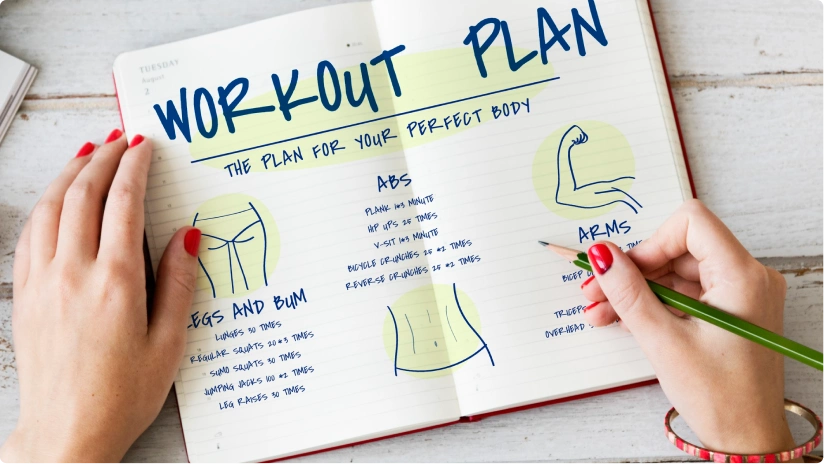 TUESDAY
August
2
WORKOUT PLAN
THE PLAN FOR YOUR PERFECT BODY
ABS
PLANK 1*3 MINUTE
HIP UPS 25 TIMES
V-SIT 1*3 MINUTE
BICYCLE CRUNCHES 25 *2 TIMES
REVERSE CRUNCHES 25 *2 TIMES
LEGS AND BUM
LUNGES 30 TIMES
REGULAR SQUATS 20*3 TIMES
SUMO SQUATS 30 TIMES
JUMPING JACKS 100 *2 TIMES
LEG RAISES 30 TIMES
ARMS
TIMES
BICEP
TRICEPS
OVERHEAD